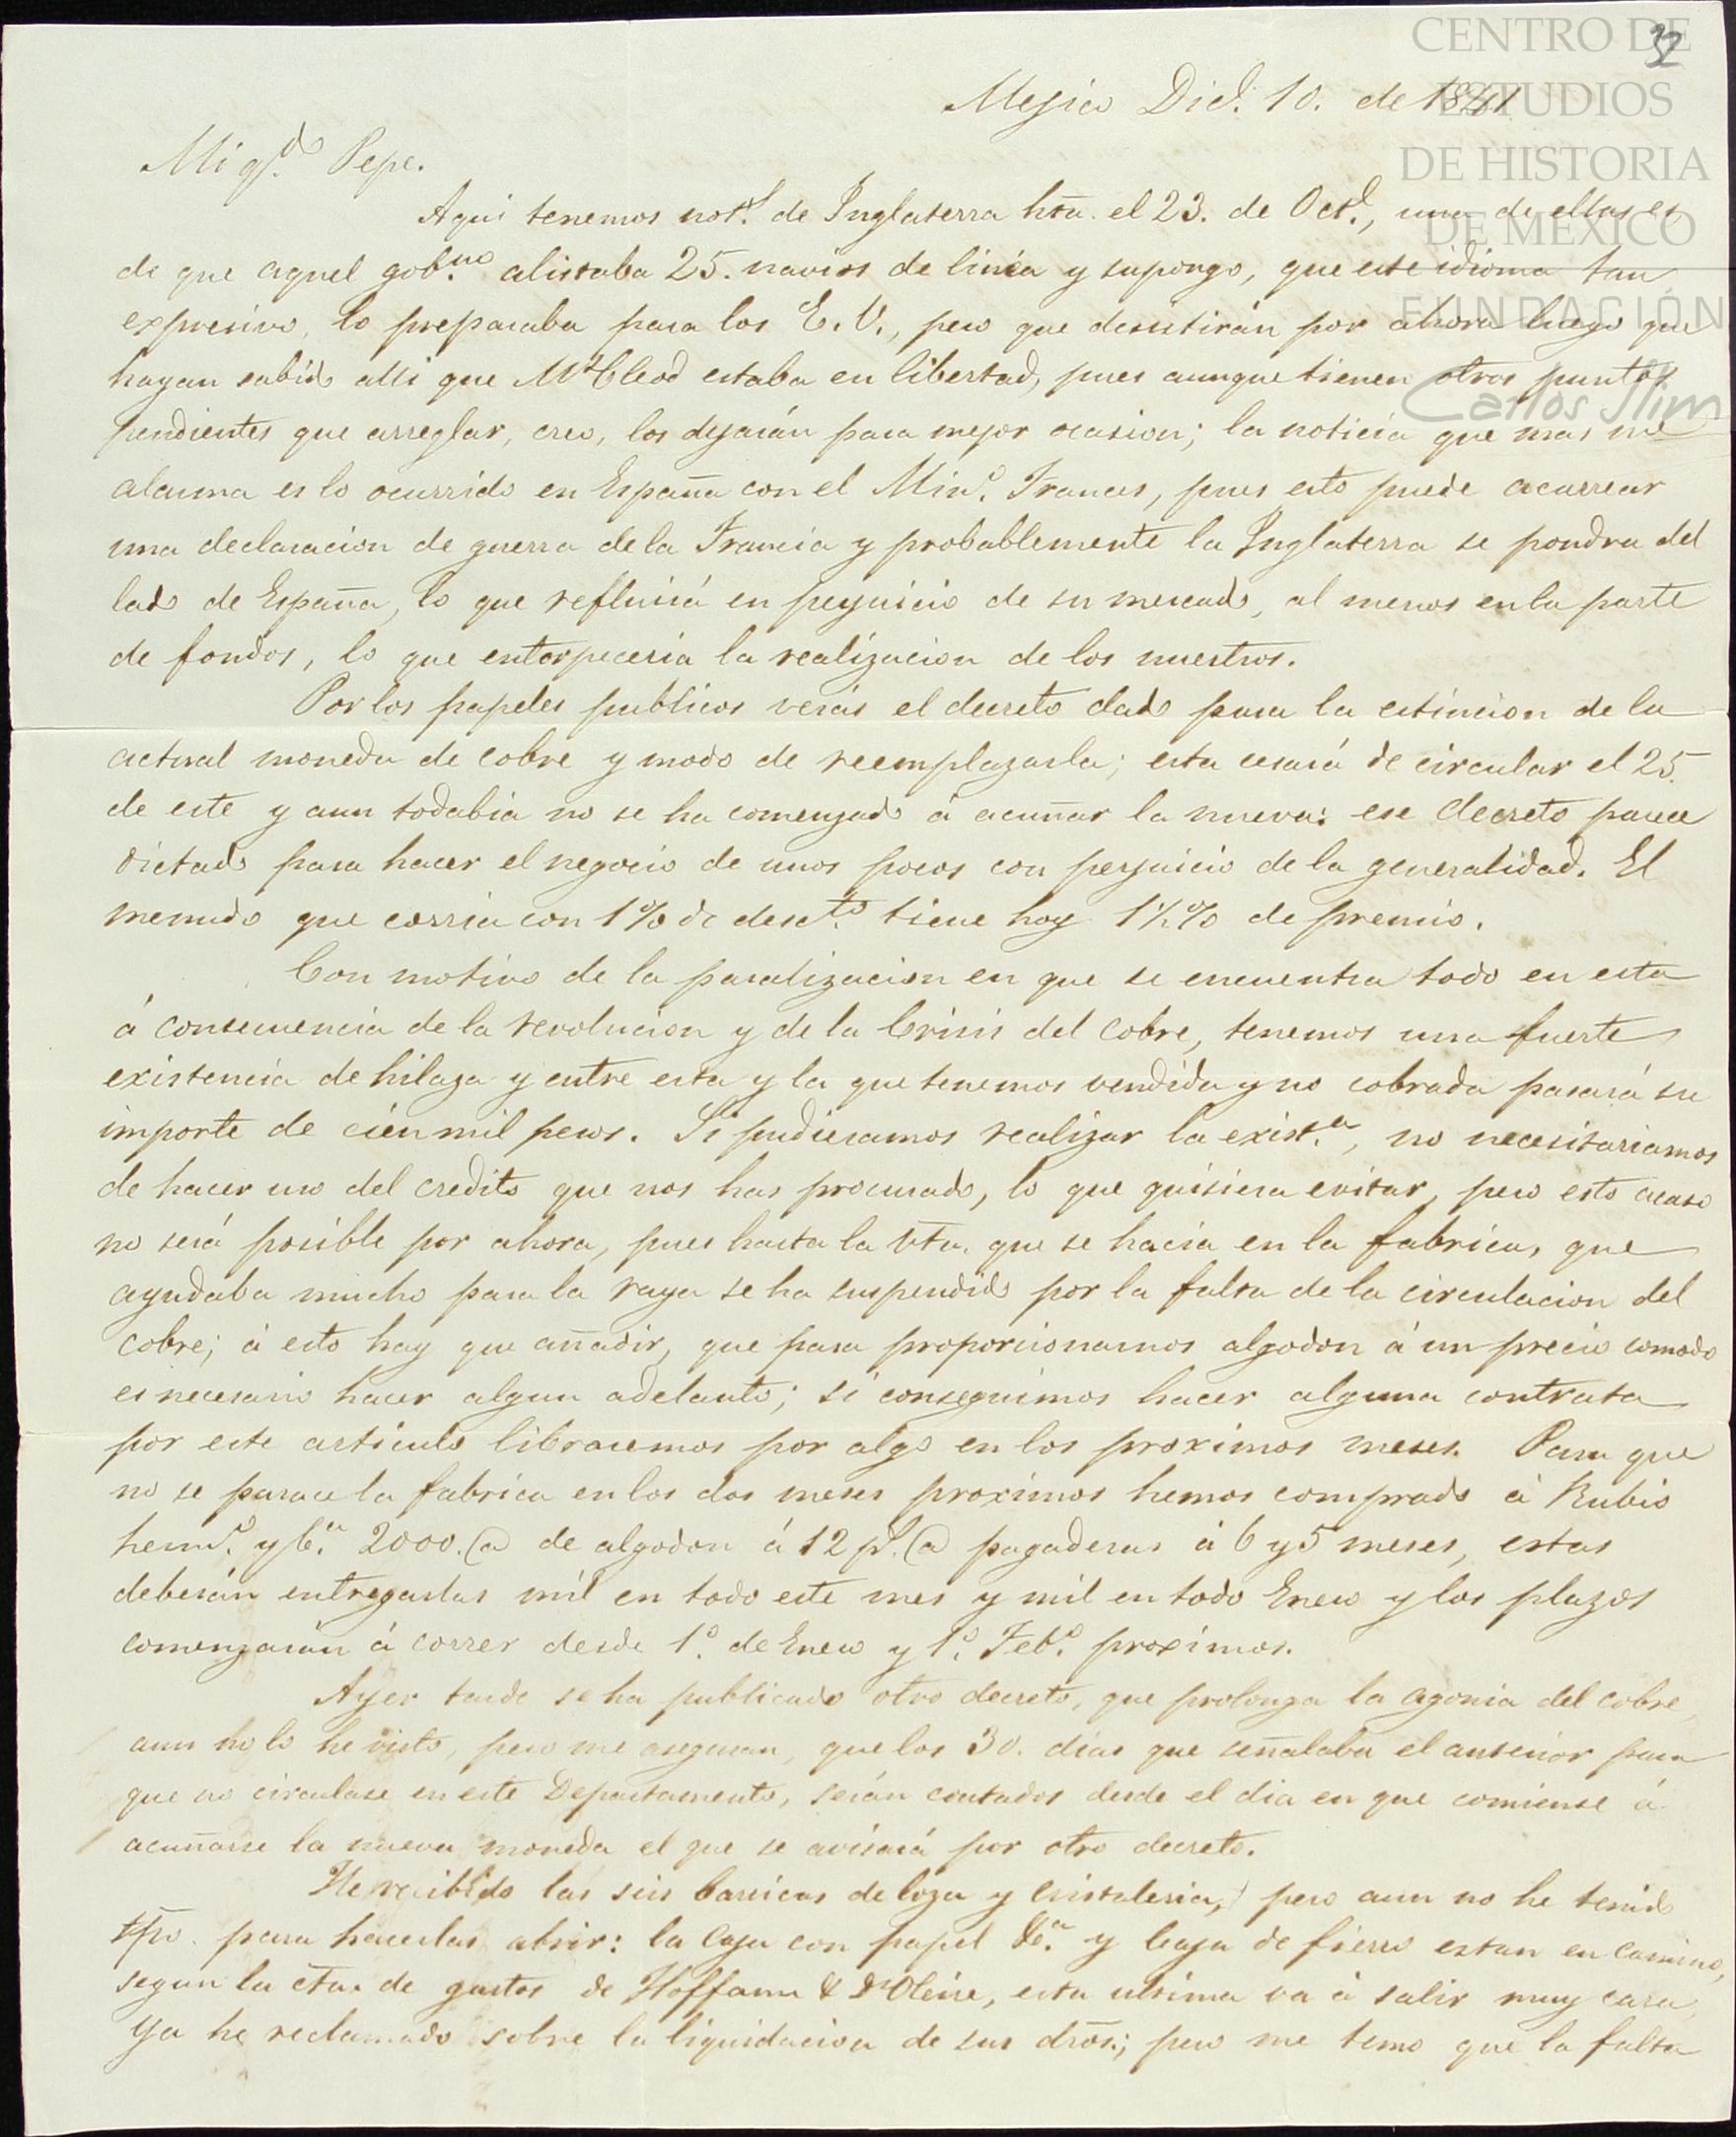 32
CENTRO DE
ESTUDIOS
DE HISTORIA
DE MÉXICO
FUNDACIÓN
Carlos Slim
Mejico Dice. 10. de 1841
Mi qdo. Pepe.
Aqui tenemos nots. de Inglaterra hta. el 23. de Octe., una de ellas es
de que aquel gobno. alistaba 25. navios de linea y supongo, que este idioma tan
expresivo, lo preparaba para los E. U., pero que desistirán por ahora luego que
hayan sabido alli que McCleod estaba en libertad, pues aunque tienen otros puntos
pendientes que arreglar, creo, los dejarán para mejor ocasion; la noticia que mas me
alarma es lo ocurrido en España con el Mino. Frances, pues esto puede acarrear
una declaracion de guerra de la Francia y probablemente la Inglaterra se pondra del
lado de España, lo que refluirá en perjuicio de su mercado, al menos en la parte
de fondos, lo que entorpeceria la realizacion de los nuestros.
Por los papeles publicos verás el decreto dado para la estincion de la
actual moneda de cobre y modo de reemplazarla; esta cesará de circular el 25.
de este y aun todabia no se ha comenzado á acuñar la nueva: ese decreto parece
dictado para hacer el negocio de unos pocos con perjuicio de la generalidad. El
menudo que corria con 1% de descto. tiene hoy 1½% de premio.
Con motivo de la paralizacion en que se encuentra todo en esta
á consecuencia de la revolucion y de la Crisis del cobre, tenemos una fuerte
existencia de hilaza y entre esta y la que tenemos vendida y no cobrada pasará su
importe de cien mil pesos. Si pudieramos realizar la exista., no necesitariamos
de hacer uso del credito que nos has procurado, lo que quisiera evitar, pero esto acaso
no será posible por ahora, pues hasta la vta. que se hacia en la fabrica, que
ayudaba mucho para la raya se ha suspendido por la falta de la circulacion del
cobre; á esto hay que añadir, que para proporcionarnos algodon á un precio comodo
es necesario hacer algun adelanto; si conseguimos hacer alguna contrata
por este articulo libraremos por algo en los proximos meses. Para que
no se parace la fabrica en los dos meses proximos hemos comprado á Rubio
hermo. y Ca. 2000. @ de algodon á 12 ps. @ pagaderas á 6 y 5 meses, estas
deberán entregarlas mil en todo este mes y mil en todo Enero y los plazos
comenzarán á correr desde 1o. de Enero y 1o. Febo. proximos.
Ayer tarde se ha publicado otro decreto, que prolonga la agonia del cobre,
aun no lo he visto, pero me aseguran, que los 30. dias que señalaba el anterior para
que no circulase en este Departamento, serán contados desde el dia en que comiense á
acuñarse la nueva moneda el que se avisará por otro decreto.
He recibido las seis barricas de loza y cristaleria, pero aun no he tenido
tpo. para hacerlas abrir: la caja con papel &a. y caja de fierro estan en camino,
segun la cta. de gastos de Hoffann & D'Oleire, esta ultima va á salir muy cara,
ya he reclamado sobre la liquidacion de sus dros.; pero me temo que la falta